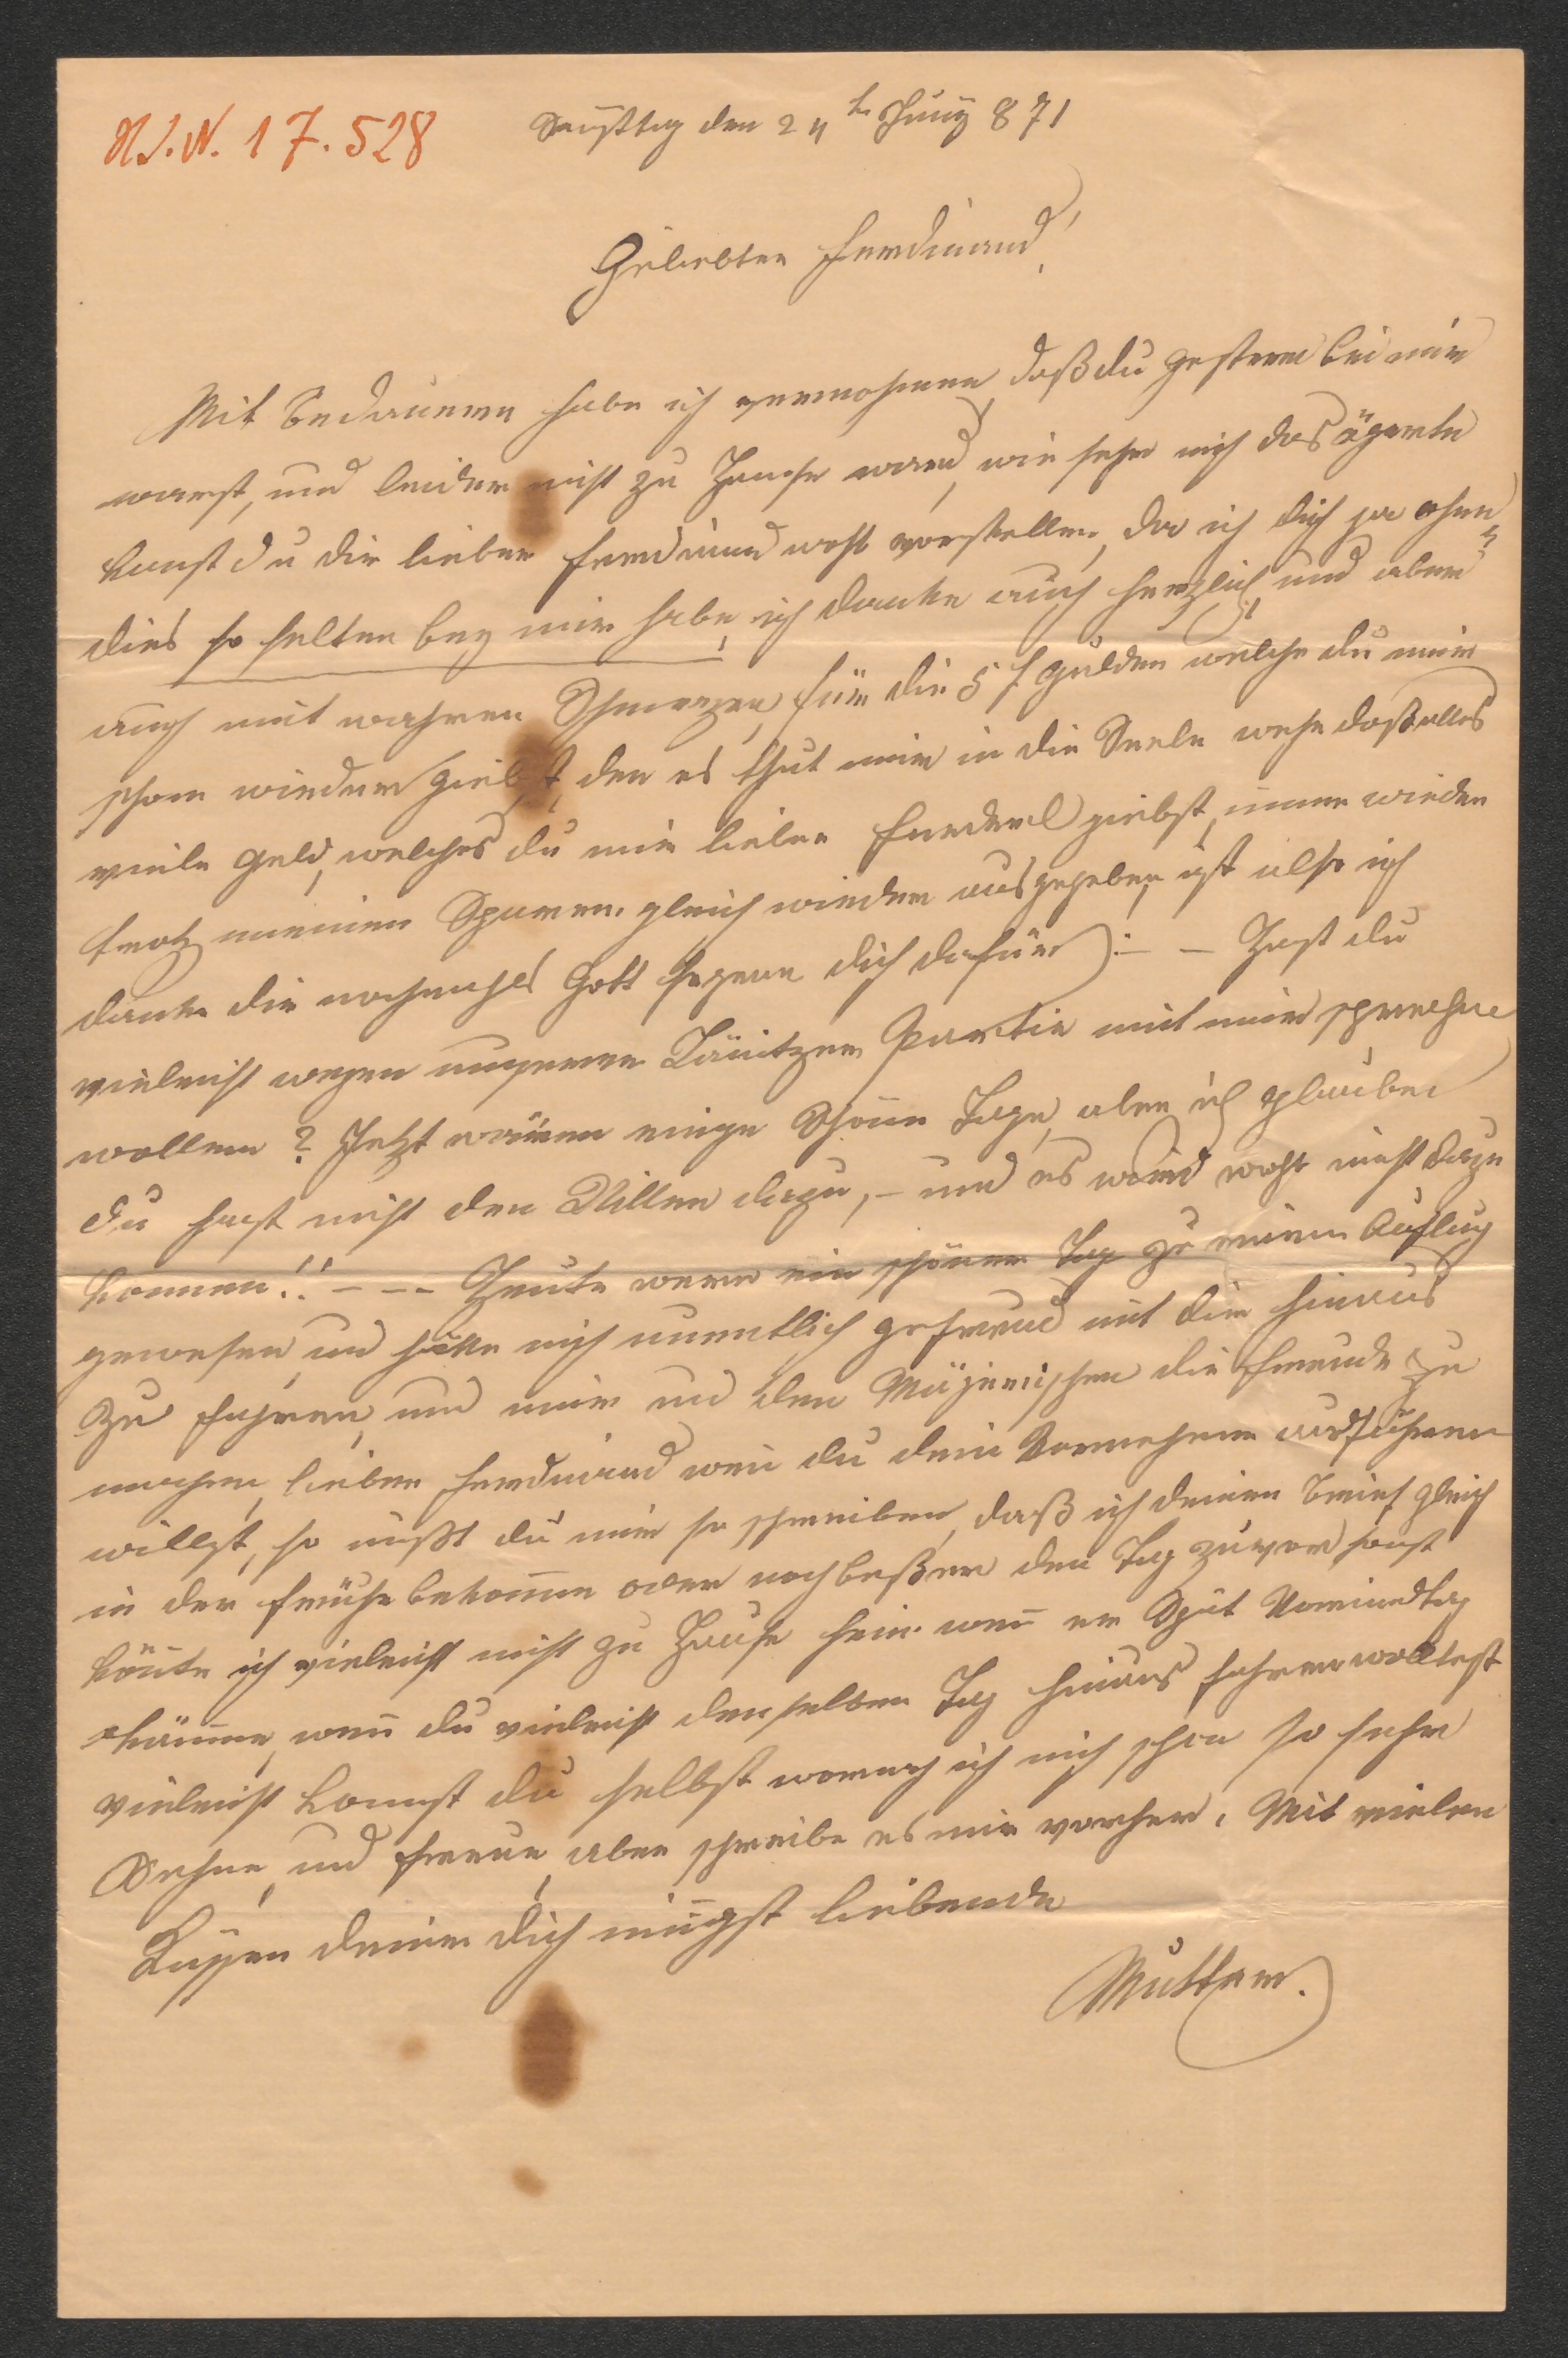 H.I.N. 17.528
Samsttag den 24te Juny 871
Geliebter Ferdinand!
Mit Bedauern habe ich vernohmen, daß du gestern bei mir
warst, und leider nicht zu Hause war, wie sehr mich das ägerte
kanst du dir lieber Ferdinand wohl vorstellen, da ich dich ja ohne
dies so selten bey mir habe, ich danke auch herzlich, und aber
auch mit wahren Schmerzen, für die 5 f Gulden welche du mir
schon wieder giebst, den es thut mir in die Seele wehe daß alles
viele Geld, welches du mir lieber Ferderl giebst, immer wieder
trotz meinen Sparen gleich wieder ausgegeben ist also ich
danke dir nochmahls Gott segne dich dafür: – – Hast du
vielleicht wegen unserer Partie mit mir sprechen
wollen? Jetzt wären einige Schöne Tage, aber ich glaube
du hast nicht den Willen dazu, – und es wird wohl nicht dazu
kommen!! – – – Heute were ein schöner Tag zu einen Ausflug
gewesen, und hätte mich unentlich gefreud mit dir hinaus
zu fahren, und mir und den die Freude zu
machen, lieber Ferdinand wen du dein Vornehmen ausführen
willst, so mußt du mir so schreiben, daß ich deinen Brief gleich
in der Frühe bekomme oder noch beßer den Tag zuvor, sonst
könnte ich vielleicht nicht zu Hause sein wenn er Spät Vormittag
käme, wenn du vielleicht denselben Tag hinaus fahren wolltest
vielleicht kommst du selbst wornach ich mich schon so sehr
Sehne, und freue, aber schreibe es mir vorher. Mit vielen
Küssen deine dich innigst liebende
Mutter.